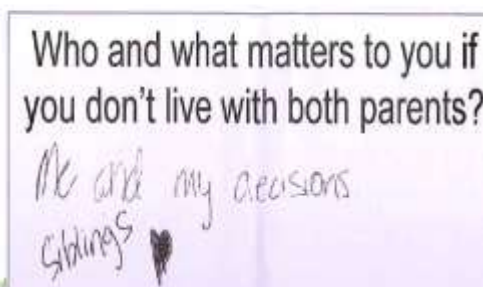 Who and what matters to you if
you don't live with both parents?
Me and my decisions
Siblings